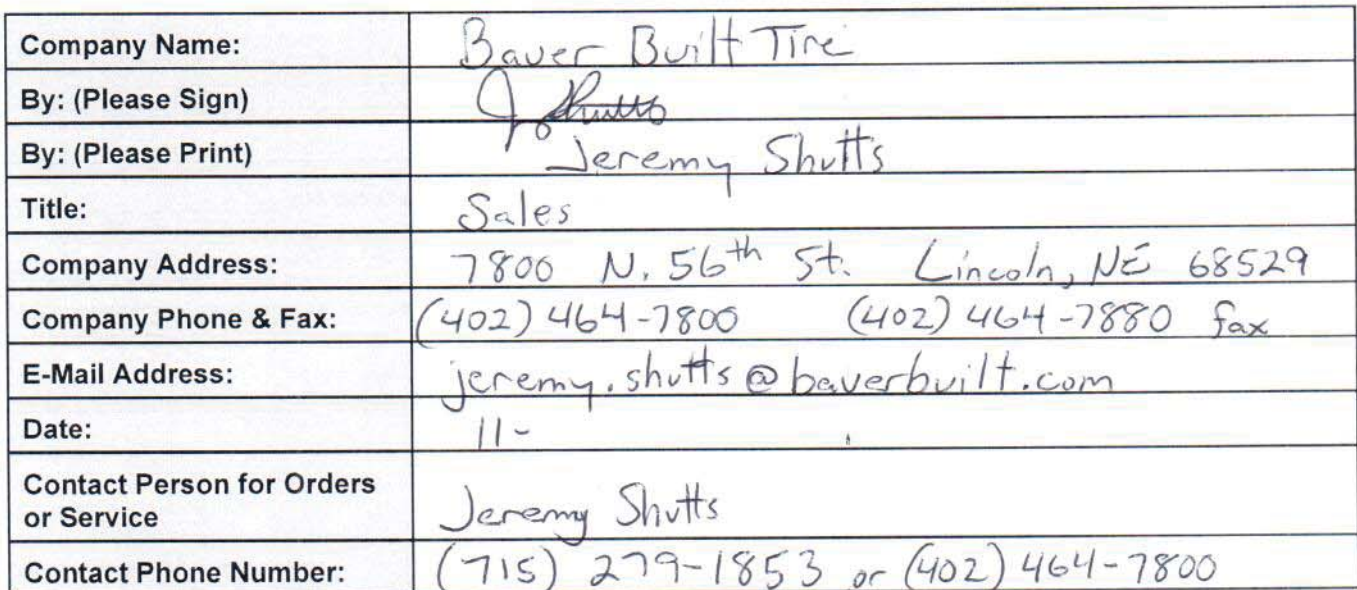 Company Name: Bauer Built Tire
By: (Please Sign) J Shutts
By: (Please Print) Jeremy Shutts
Title: Sales
Company Address: 7800 N. 56th St. Lincoln, NE 68529
Company Phone & Fax: (402) 464-7800 (402) 464-7880 fax
E-Mail Address: jeremy.shutts@bauerbuilt.com
Date: 11-
Contact Person for Orders
or Service Jeremy Shutts
Contact Phone Number: (715) 279-1853 or (402) 464-7800